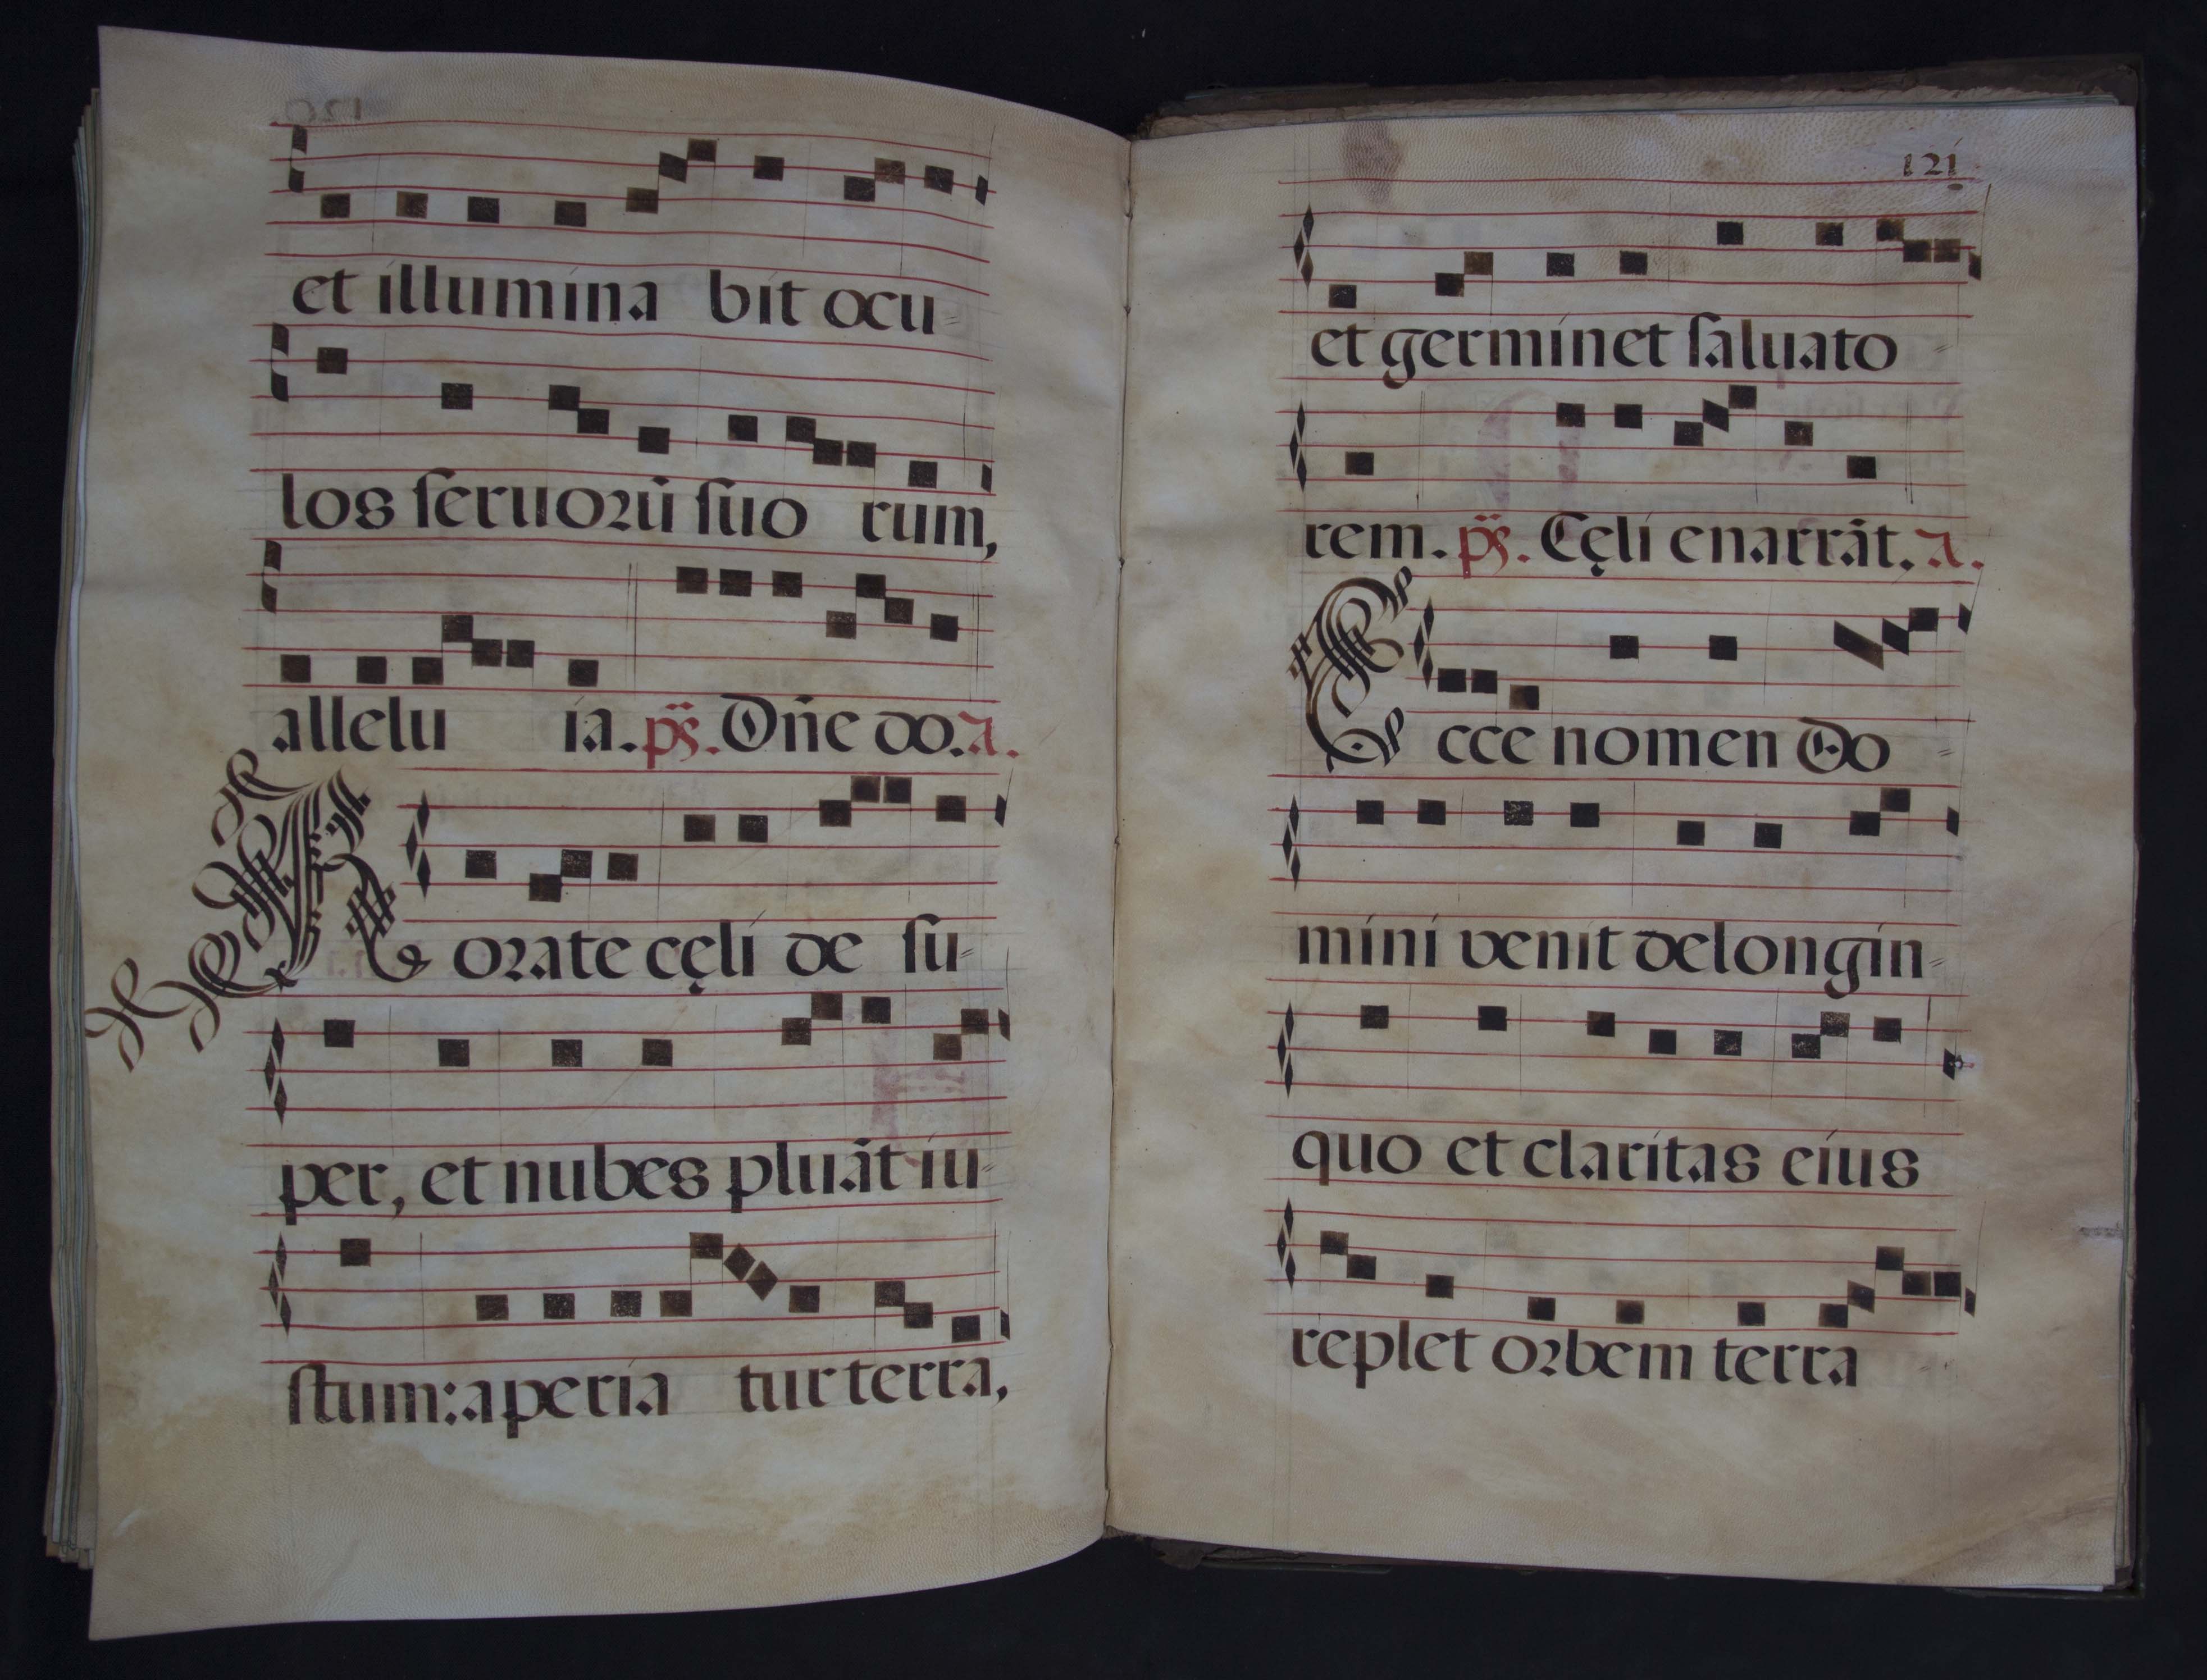 et illumina bit ocu=
los ſeruoꝛū ſuo rum,
allelu ia. ps̄. Dn̄e do. a.
R orate cęli de ſu=
per, et nubes pluāt iu=
ſtum: aperia tur terra,
121
et germinet ſaluato=
rem. ps̄. Cęli enarrāt. a.
E cce nomen Do=
mini venit delongin=
quo et claritas eius
replet oꝛbem terra